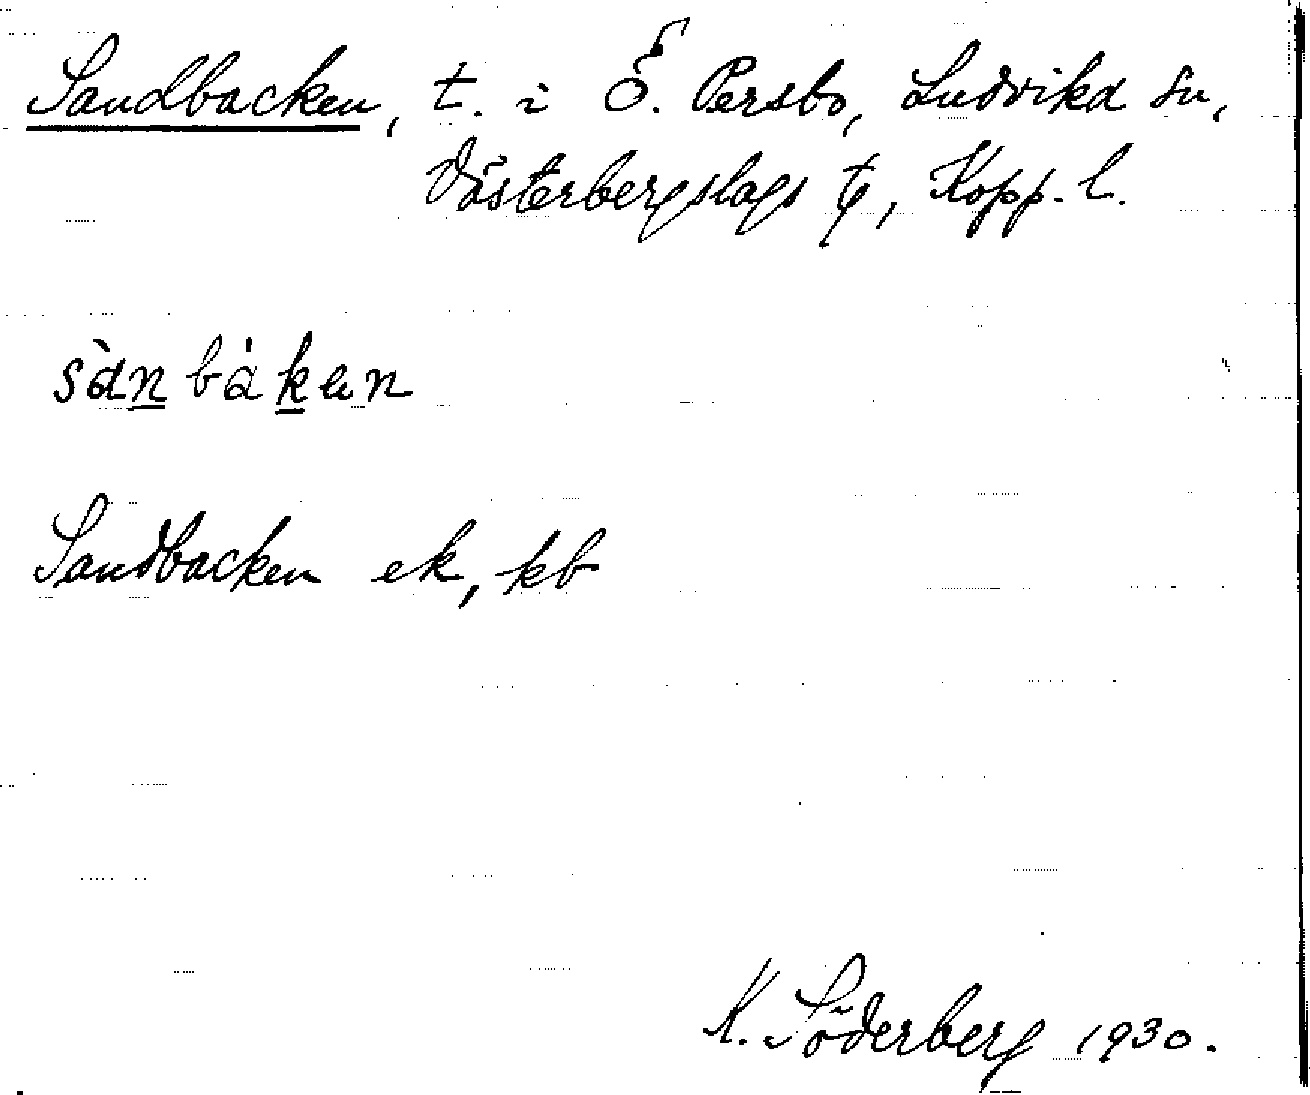 Sandbacken, t. i Ö. Persbo, Ludvika sn,
Västerbergslags tg, Kopp. l.
sànbákɐn
Sandbacken ek, kb
K. Söderberg 1930.